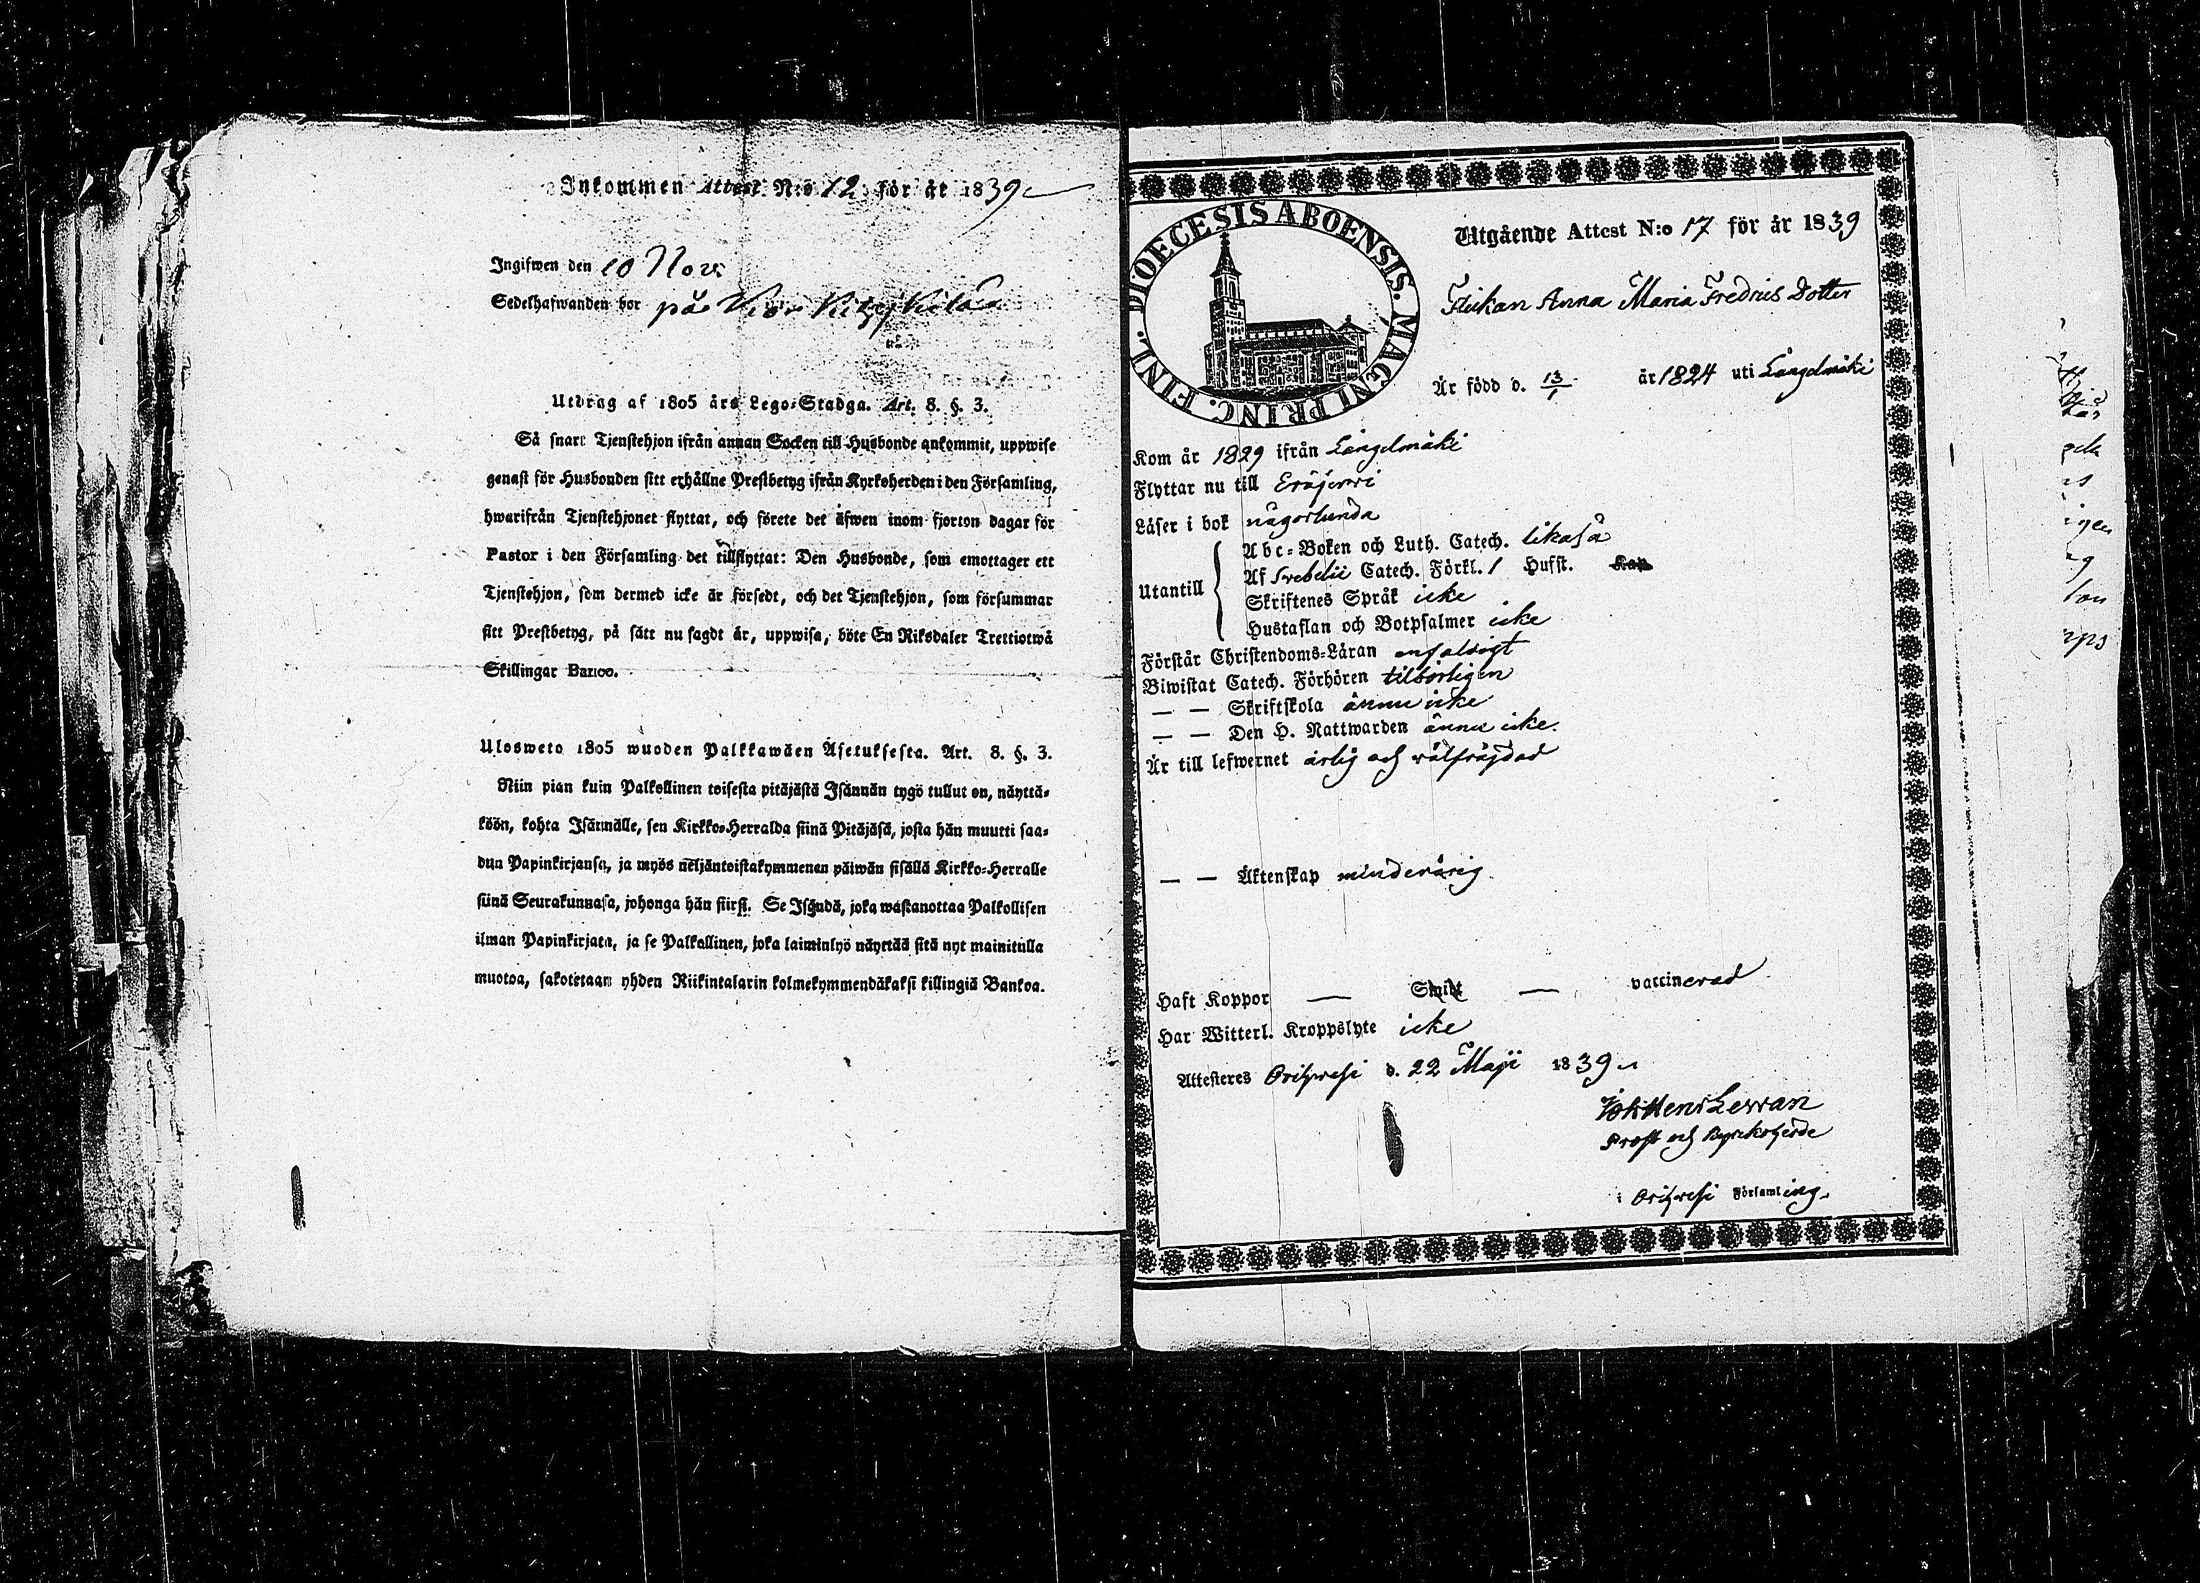 Inkommen Attest N:o 12 för år 1839
Ingifwen den 10 Nov.
Sedelhafwanden bor på
Utdrag af 1805 års Lego-Stadga. Art. 8. §. 3.
Så snart Tjenstehjon ifrån annan Socken till Husbonde ankommit, uppwise
genast för Husbonden sitt erhållne Prestbetyg ifrån Kyrkoherden i den Församling,
hwarifrån Tjenstehjonet flyttat, och förete det äfwen inom fjorton dagar för
Pastor i den Församling det tillflyttat: Den Husbonde, som emottager ett
Tjenstehjon, som dermed icke är försedt, och det Tjenstehjon, som försummar
sitt Prestbetyg, på sätt nu sagdt är, uppwisa, böte En Riksdaler Trettiotwå
Skillingar Banco.
Ulosweto 1805 wuoden Palkkawäen Asetuksesta. Art. 8. §. 3.
Niin pian kuin Palkollinen toisesta pitäjästä Isännän tygö tullut on, näyttä-
köön, kohta Isännälle, sen Kirkko-Herralda siinä Pitäjäsä, josta hän muutti saa-
dun Papinkirjansa, ja myös neljäntoistakymmenen päiwän sisällä Kirkko-Herralle
siinä Seurakunnasa, johonga hän siirsi. Se Isändä, joka wastanottaa Palkollisen
ilman Papinkirjata, ja se Palkollinen, joka laiminlyö näyttää sitä nyt mainitulla
muotoa, sakotetaan yhden Riikintalarin kolmekymmendäkaksi killingiä Bankoa.
DIOECESIS ABOENSIS. MAGNI PRINC. FINL.
Utgående Attest N:o 17 för år 1839
Flickan Anna Maria Fredrics Dotter
Är född d. 13/1 år 1824 uti Längelmäki
Kom år 1829 ifrån Längelmäki
Flyttar nu till Eräjerwi
Läser i bok någorlunda
Utantill
Abc-Boken och Luth. Catech. likaså
Af Svebelii Catech. Förkl. 1 Hufst. Kap.
Skriftenes Språk icke
Hustaflan och Botpsalmer icke
Förstår Christendoms-Läran enfaldigt
Biwistat Catech. Förhören tilbörligen
— — Skriftskola ännu icke
— — Den H. Nattwarden ännu icke.
Är till lefwernet ärlig och wälfräjdad
— — Äktenskap minderårig.
Haft Koppor — Smitt — vaccinerad
Har Witterl. Kroppslyte icke
Attesteres Orihwesi d. 22 Maji 1839
Prost och Kyrckoherde
i Orihwesi Församling.